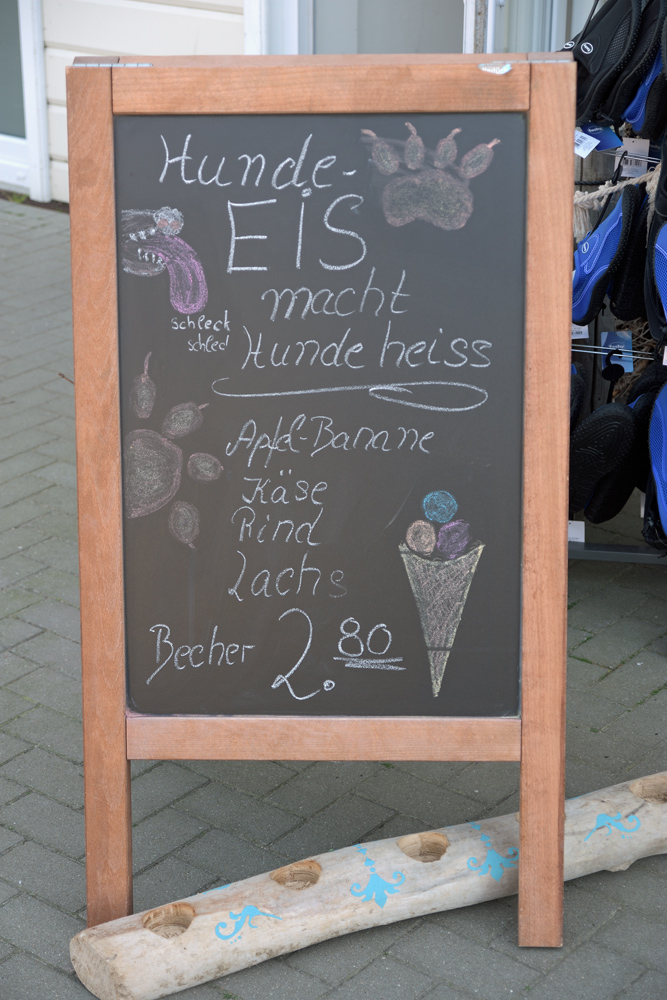 Hunde-
EiS
macht
Hunde heiss
schleck
schleck
Apfel-Banane
Käse
Rind
Lachs
Becher 2.80